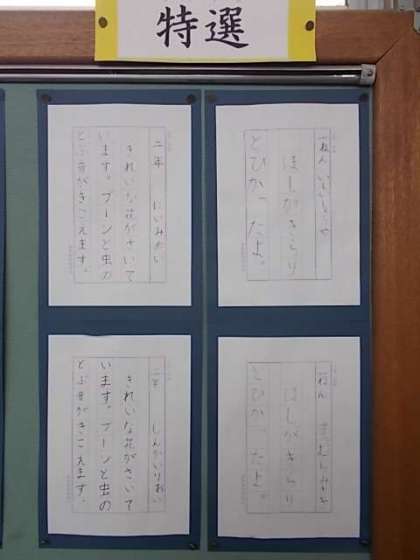 特選
一ねん
ほしがきらり
とひかったよ。
二年
きれいな花がさいて
います。ブーンと虫の
とぶ音がきこえます。
一ねん
ほしがきらり
とひかったよ。
二年
きれいな花がさいて
います。ブーンと虫の
とぶ音がきこえます。